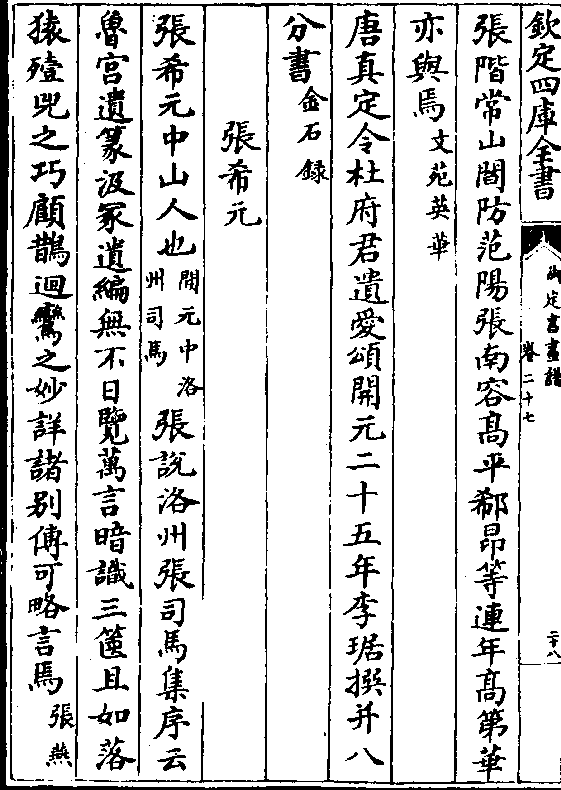 欽定四庫全書
御定書畫譜
卷二十七
二十八
張階常山閻防范陽張南容髙平郗昂等連年髙第華
亦與焉文苑英華
唐真定令杜府君遺愛頌開元二十五年李琚撰并八
分書金石録
張希元
張希元中山人也開元中洛州司馬張說洛州張司馬集序云
魯宫遺篆汲冡遺編無不日覽萬言暗識三篋且如落
猿殪兕之巧顧鵲迴鸞之妙詳諸别傳可略言焉張燕